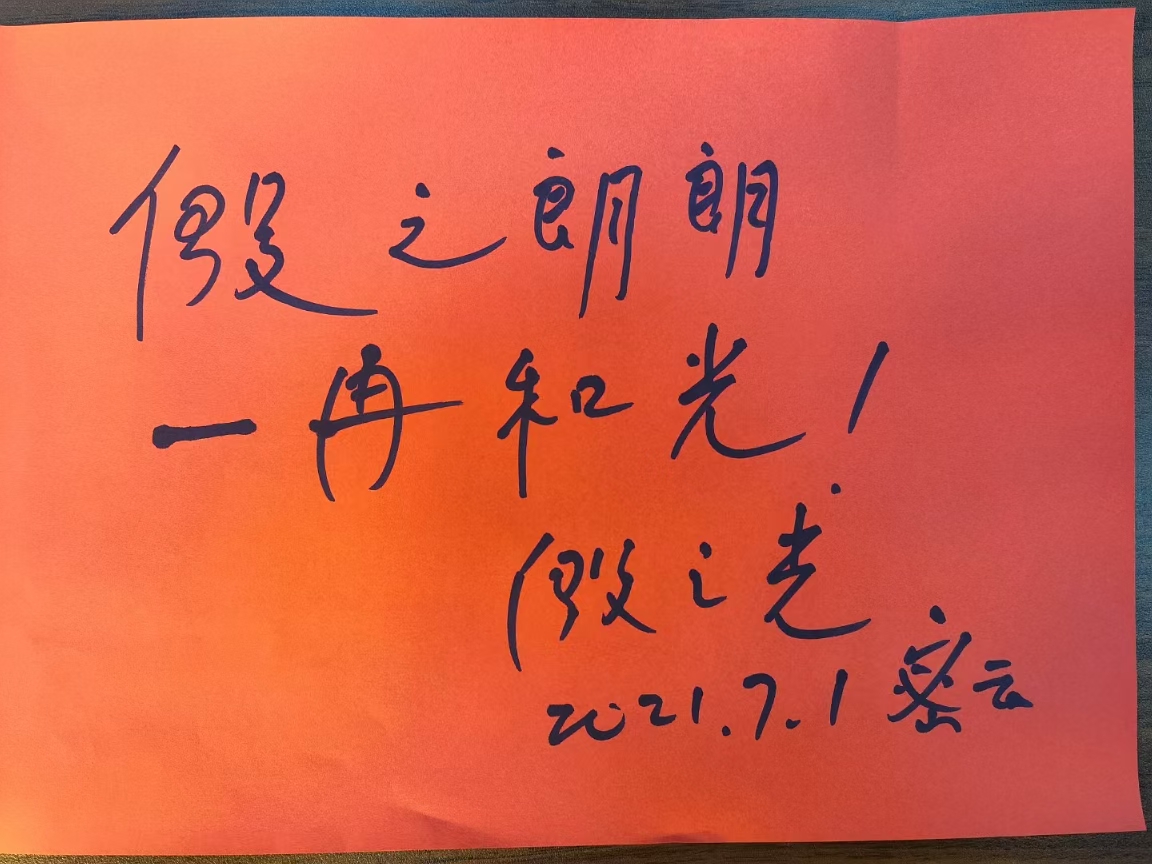 假之朗朗
一再和光!
假之光
2021.7.1 密云